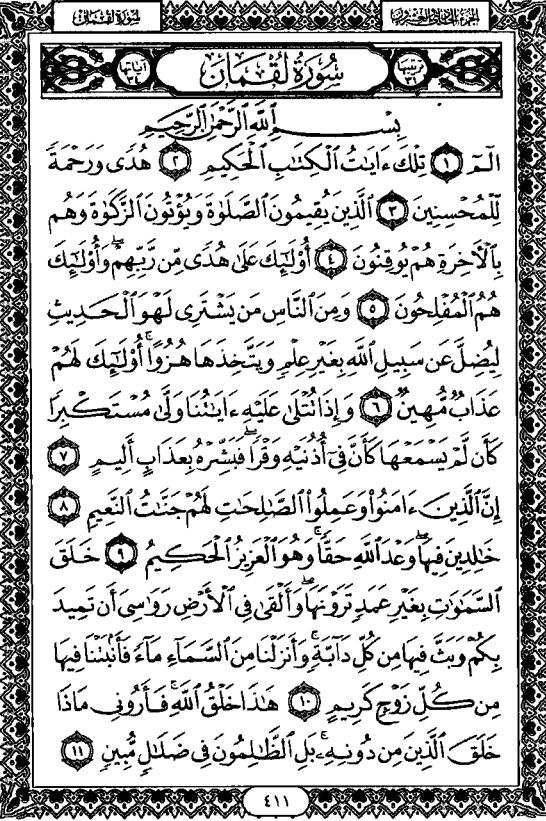 الجزء الحادي والعشرون
سورة لقمان
ترتيبها ٣١
سُورَةُ لُقْمَانَ
آياتها ٣٤
بِسْمِ ٱللَّهِ ٱلرَّحْمَٰنِ ٱلرَّحِيمِ
الٓمٓ ۝١ تِلْكَ ءَايَٰتُ ٱلْكِتَٰبِ ٱلْحَكِيمِ ۝٢ هُدًى وَرَحْمَةً
لِّلْمُحْسِنِينَ ۝٣ ٱلَّذِينَ يُقِيمُونَ ٱلصَّلَوٰةَ وَيُؤْتُونَ ٱلزَّكَوٰةَ وَهُم
بِٱلْءَاخِرَةِ هُمْ يُوقِنُونَ ۝٤ أُو۟لَٰٓئِكَ عَلَىٰ هُدًى مِّن رَّبِّهِمْ ۖ وَأُو۟لَٰٓئِكَ
هُمُ ٱلْمُفْلِحُونَ ۝٥ وَمِنَ ٱلنَّاسِ مَن يَشْتَرِى لَهْوَ ٱلْحَدِيثِ
لِيُضِلَّ عَن سَبِيلِ ٱللَّهِ بِغَيْرِ عِلْمٍ وَيَتَّخِذَهَا هُزُوًا ۚ أُو۟لَٰٓئِكَ لَهُمْ
عَذَابٌ مُّهِينٌ ۝٦ وَإِذَا تُتْلَىٰ عَلَيْهِ ءَايَٰتُنَا وَلَّىٰ مُسْتَكْبِرًا
كَأَن لَّمْ يَسْمَعْهَا كَأَنَّ فِىٓ أُذُنَيْهِ وَقْرًا ۖ فَبَشِّرْهُ بِعَذَابٍ أَلِيمٍ ۝٧
إِنَّ ٱلَّذِينَ ءَامَنُوا۟ وَعَمِلُوا۟ ٱلصَّٰلِحَٰتِ لَهُمْ جَنَّٰتُ ٱلنَّعِيمِ ۝٨
خَٰلِدِينَ فِيهَا ۖ وَعْدَ ٱللَّهِ حَقًّا ۚ وَهُوَ ٱلْعَزِيزُ ٱلْحَكِيمُ ۝٩ خَلَقَ
ٱلسَّمَٰوَٰتِ بِغَيْرِ عَمَدٍ تَرَوْنَهَا ۖ وَأَلْقَىٰ فِى ٱلْأَرْضِ رَوَٰسِىَ أَن تَمِيدَ
بِكُمْ وَبَثَّ فِيهَا مِن كُلِّ دَآبَّةٍ ۚ وَأَنزَلْنَا مِنَ ٱلسَّمَآءِ مَآءً فَأَنۢبَتْنَا فِيهَا
مِن كُلِّ زَوْجٍ كَرِيمٍ ۝١٠ هَٰذَا خَلْقُ ٱللَّهِ فَأَرُونِى مَاذَا
خَلَقَ ٱلَّذِينَ مِن دُونِهِۦ ۚ بَلِ ٱلظَّٰلِمُونَ فِى ضَلَٰلٍ مُّبِينٍ ۝١١
٤١١